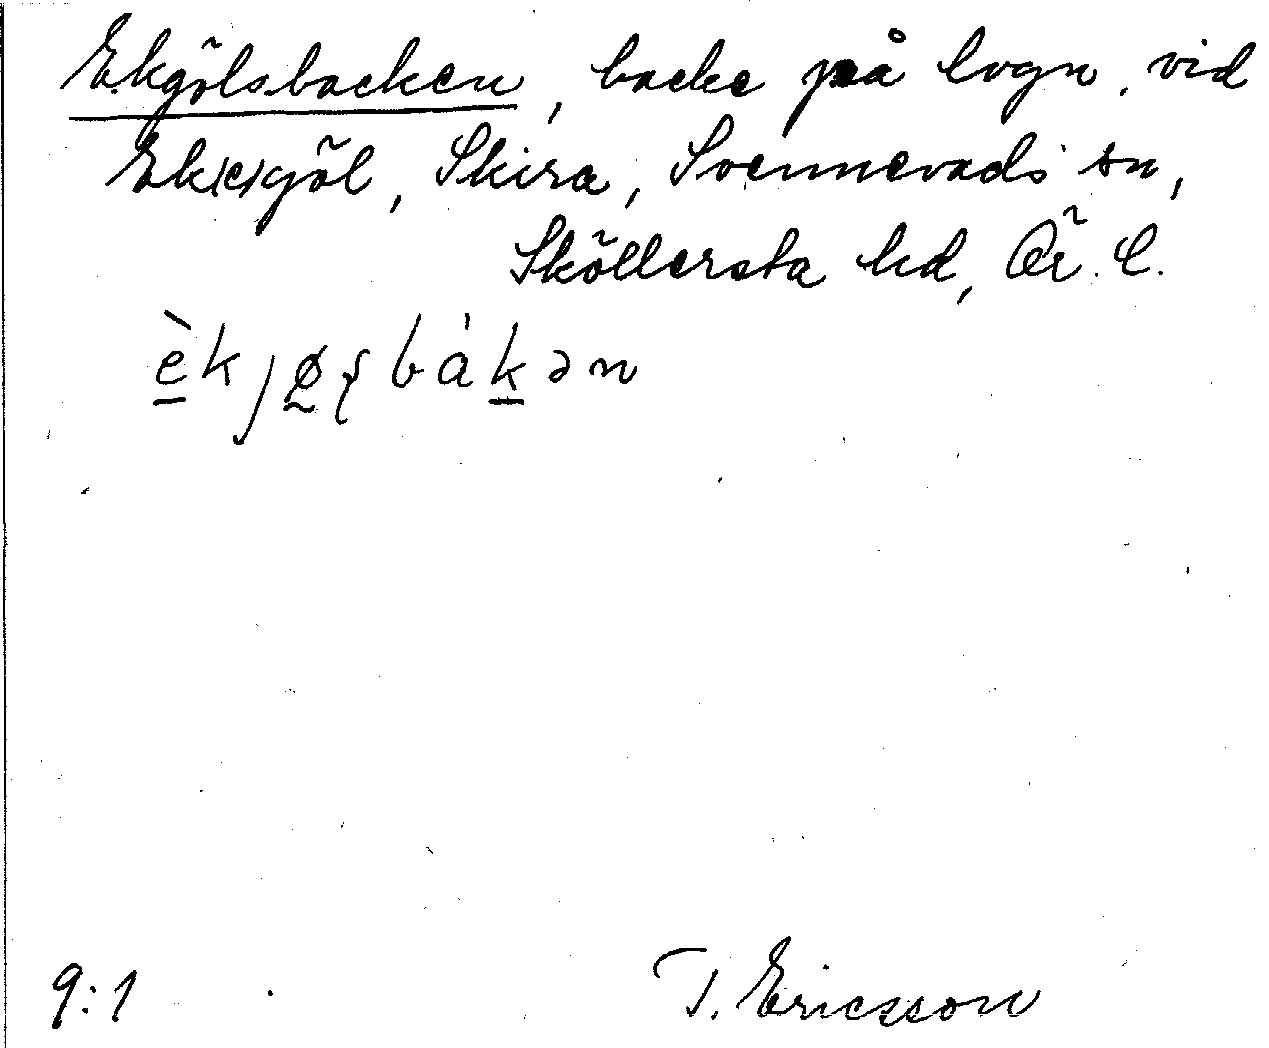 Ekgölsbacken, backe på lvgn. vid
Ek(e)göl, Skira, Svennevads sn,
Sköllersta hd, Ör. l.
èkjøʂbákən
9:1
T. Ericsson